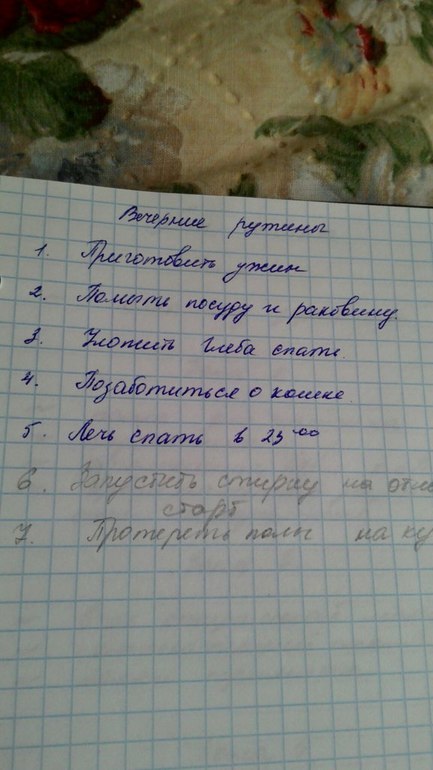 Вечерние рутины
1. Приготовить ужин
2. Помыть посуду и раковину.
3. Уложить Глеба спать.
4. Позаботиться о кошке.
5. Лечь спать в 23 00
6. Запустить стирку на
старт
7. Протереть полы на